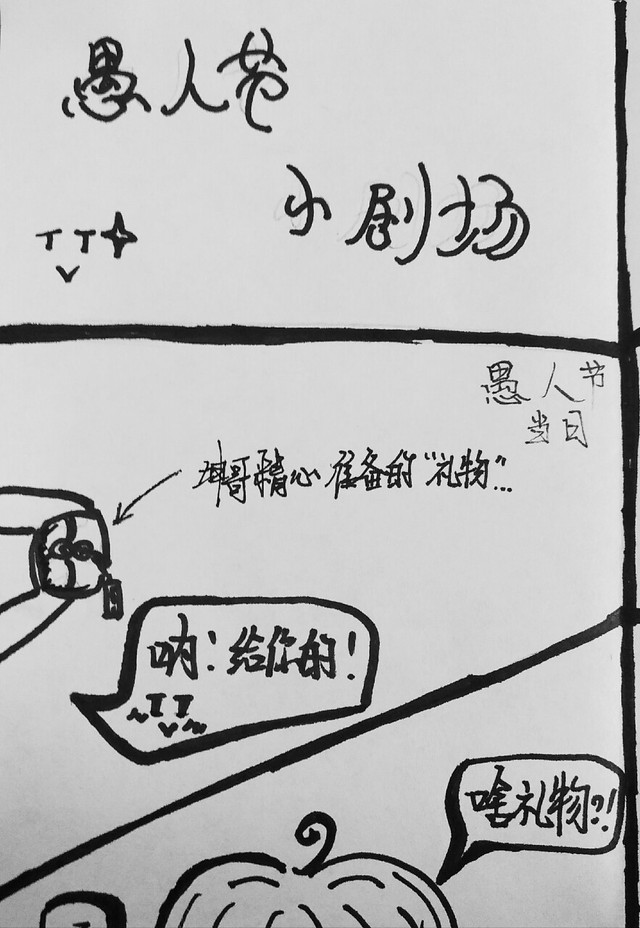 愚人节
小剧场
愚人节
当日
坤哥精心准备的“礼物”…
呐！给你的！
啥礼物?!